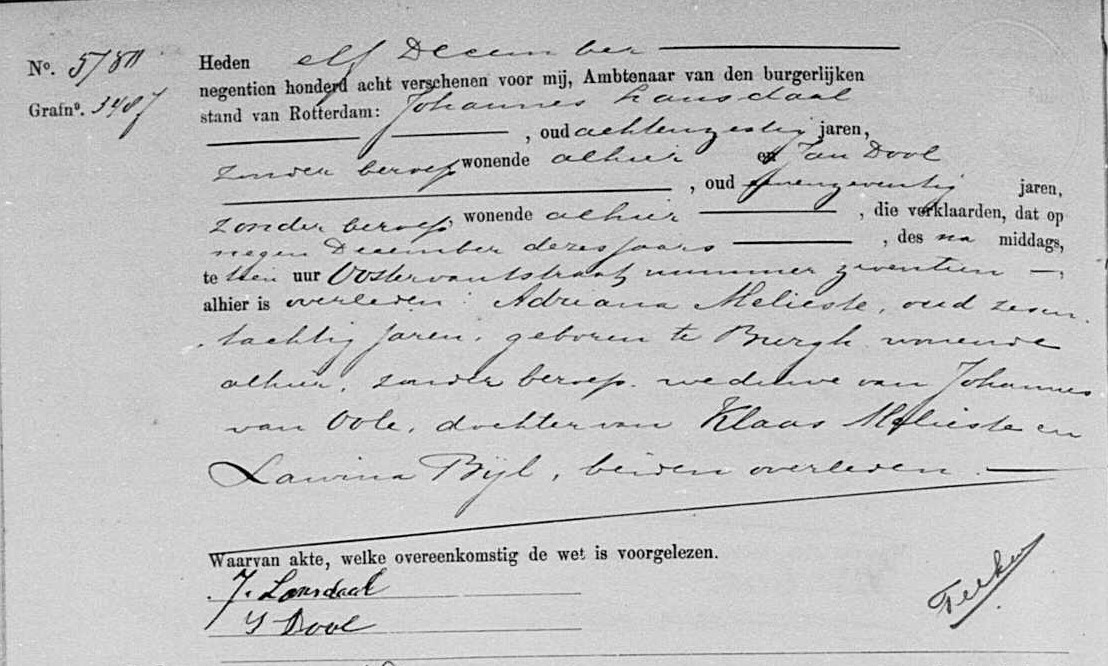 No. 5780
Grafno. 3487
Heden elf December
negentien honderd acht verschenen voor mij, Ambtenaar van den burgerlijken
stand van Rotterdam: Johannes Lansdaal
, oud achtenzestig jaren,
zonder beroep wonende alhier en Jan Dool
, oud zevenzeventig jaren,
zonder beroep, wonende alhier , die verklaarden, dat op
negen December dezes jaars , des na middags,
te tien uur Oostervantstraat nummer zeventien
alhier is overleden: Adriana Melieste, oud zesen
tachtig jaren, geboren te Burgh wonende
alhier, zonder beroep. weduwe van Johannes
van Oole, dochter van Klaas Melieste en
Lawina Bijl, beiden overleden.
Waarvan akte, welke overeenkomstig de wet is voorgelezen.
J. Lansdaal
J Dool